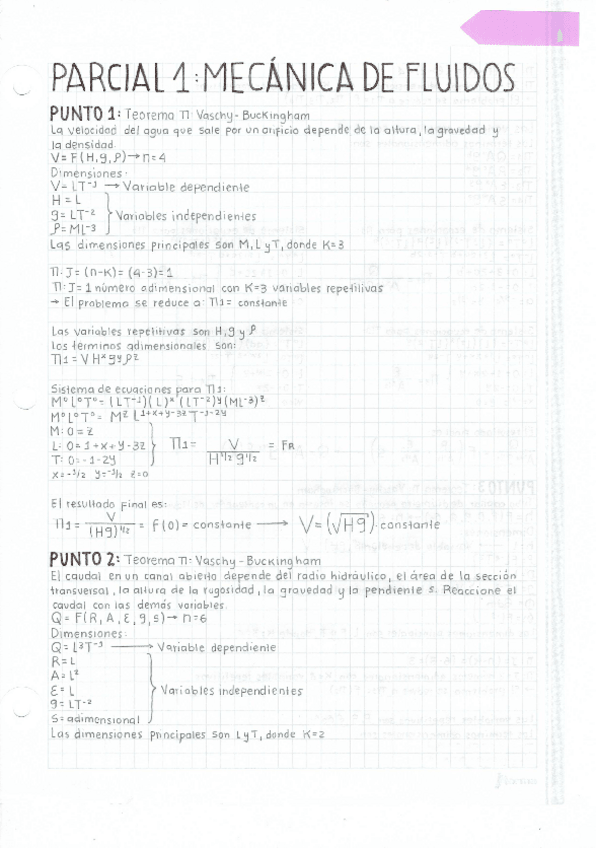 PARCIAL 1: MECÁNICA DE FLUIDOS
PUNTO 1: Teorema Π: Vaschy-Buckingham
La velocidad del agua que sale por un orificio depende de la altura, la gravedad y
la densidad.
V = F(H, g, ρ) → n = 4
Dimensiones:
V = LT⁻¹ → Variable dependiente
H = L
g = LT⁻² Variables independientes
ρ = ML⁻³
Las dimensiones principales son M, L y T, donde K = 3
Π: J = (n-K) = (4-3) = 1
Π: J = 1 número adimensional con K = 3 variables repetitivas
→ El problema se reduce a: Π1 = constante
Las variables repetitivas son H, g y ρ
los terminos adimensionales son:
Π1 = V Hˣ gʸ ρᶻ
Sistema de ecuaciones para Π1:
M⁰L⁰T⁰ = (LT⁻¹)(L)ˣ(LT⁻²)ʸ(ML⁻³)ᶻ
M⁰L⁰T⁰ = Mᶻ L¹⁺ˣ⁺ʸ⁻³ᶻ T⁻¹⁻²ʸ
M: 0 = z
L: 0 = 1+x+y-3z Π1 = V / (H^1/2 g^1/2) = FR
T: 0 = -1-2y
x = -1/2 y = -1/2 z = 0
El resultado final es:
Π1 = V / (Hg)^1/2 = f(0) = constante → V = (√Hg) · constante
PUNTO 2: Teorema Π: Vaschy-Buckingham
El caudal en un canal abierto depende del radio hidráulico, el área de la sección
transversal, la altura de la rugosidad, la gravedad y la pendiente s. Reaccione el
caudal con las demás variables.
Q = F(R, A, Ɛ, g, s) → n = 6
Dimensiones:
Q = L³T⁻¹ → Variable dependiente
R = L
A = L²
Ɛ = L Variables independientes
g = LT⁻²
S = adimensional
Las dimensiones principales son L y T, donde K = 2